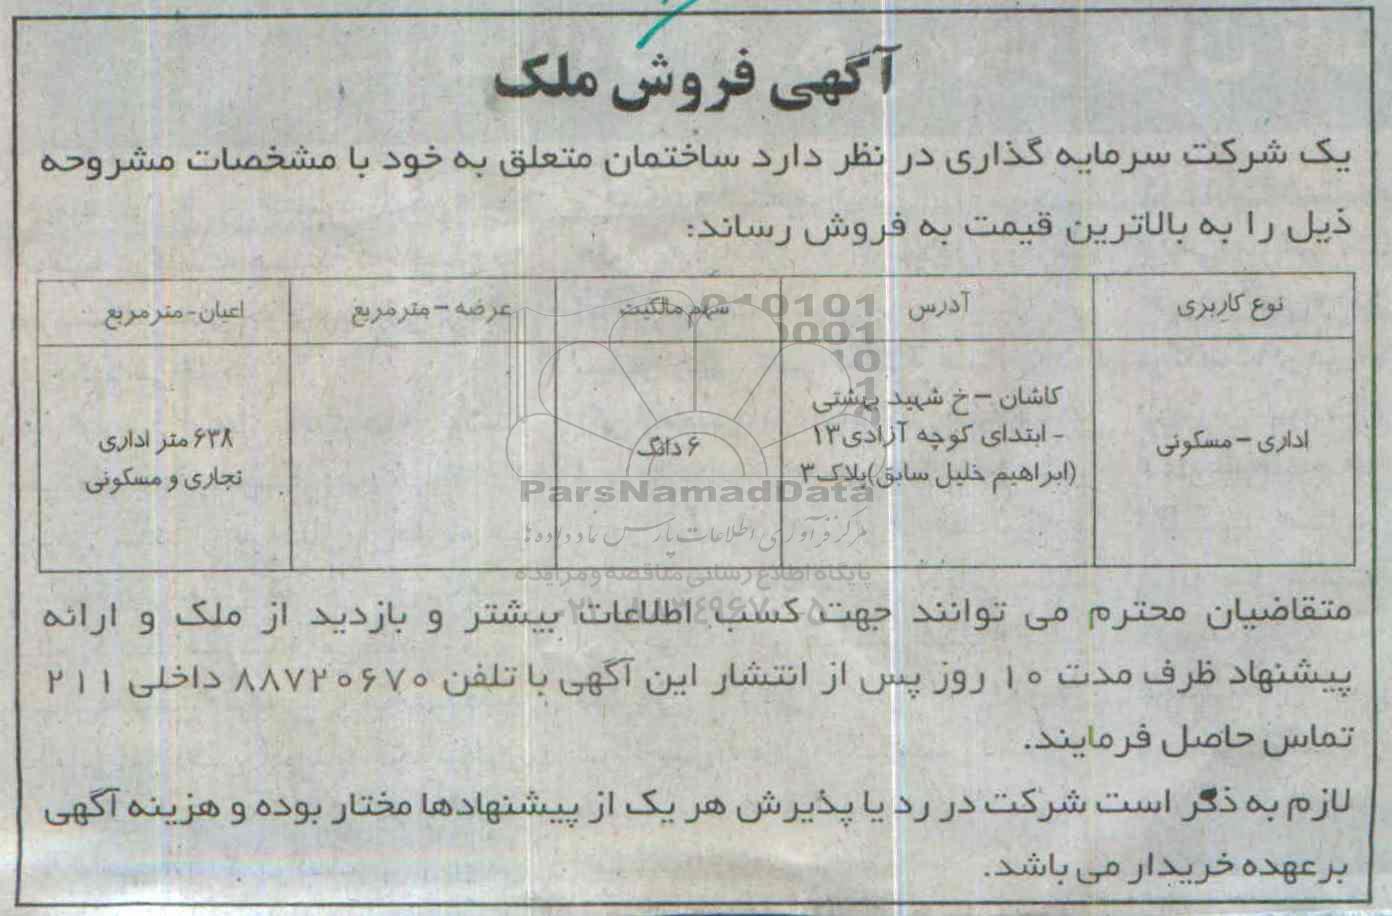 آگهی فروش ملک
یک شرکت سرمایه گذاری در نظر دارد ساختمان متعلق به خود با مشخصات مشروحه
ذیل را به بالاترین قیمت به فروش رساند:
نوع کاربری آدرس سهم مالکیت عرضه – مترمربع اعیان-مترمربع
اداری – مسکونی
کاشان – خ شهید بهشتی
- ابتدای کوچه آزادی۱۳
(ابراهیم خلیل سابق)پلاک۳
۶ دانگ
۶۳۸ متر اداری
تجاری و مسکونی
010101
0001
10
1
ParsNamadData
مرکز فرآوری اطلاعات پارس نماد داده ها
پایگاه اطلاع رسانی مناقصه و مزایده
متقاضیان محترم می توانند جهت کسب اطلاعات بیشتر و بازدید از ملک و ارائه
پیشنهاد ظرف مدت ۱۰ روز پس از انتشار این آگهی با تلفن ۸۸۷۲۰۶۷۰ داخلی ۲۱۱
تماس حاصل فرمایند.
لازم به ذکر است شرکت در رد یا پذیرش هر یک از پیشنهادها مختار بوده و هزینه آگهی
برعهده خریدار می باشد.